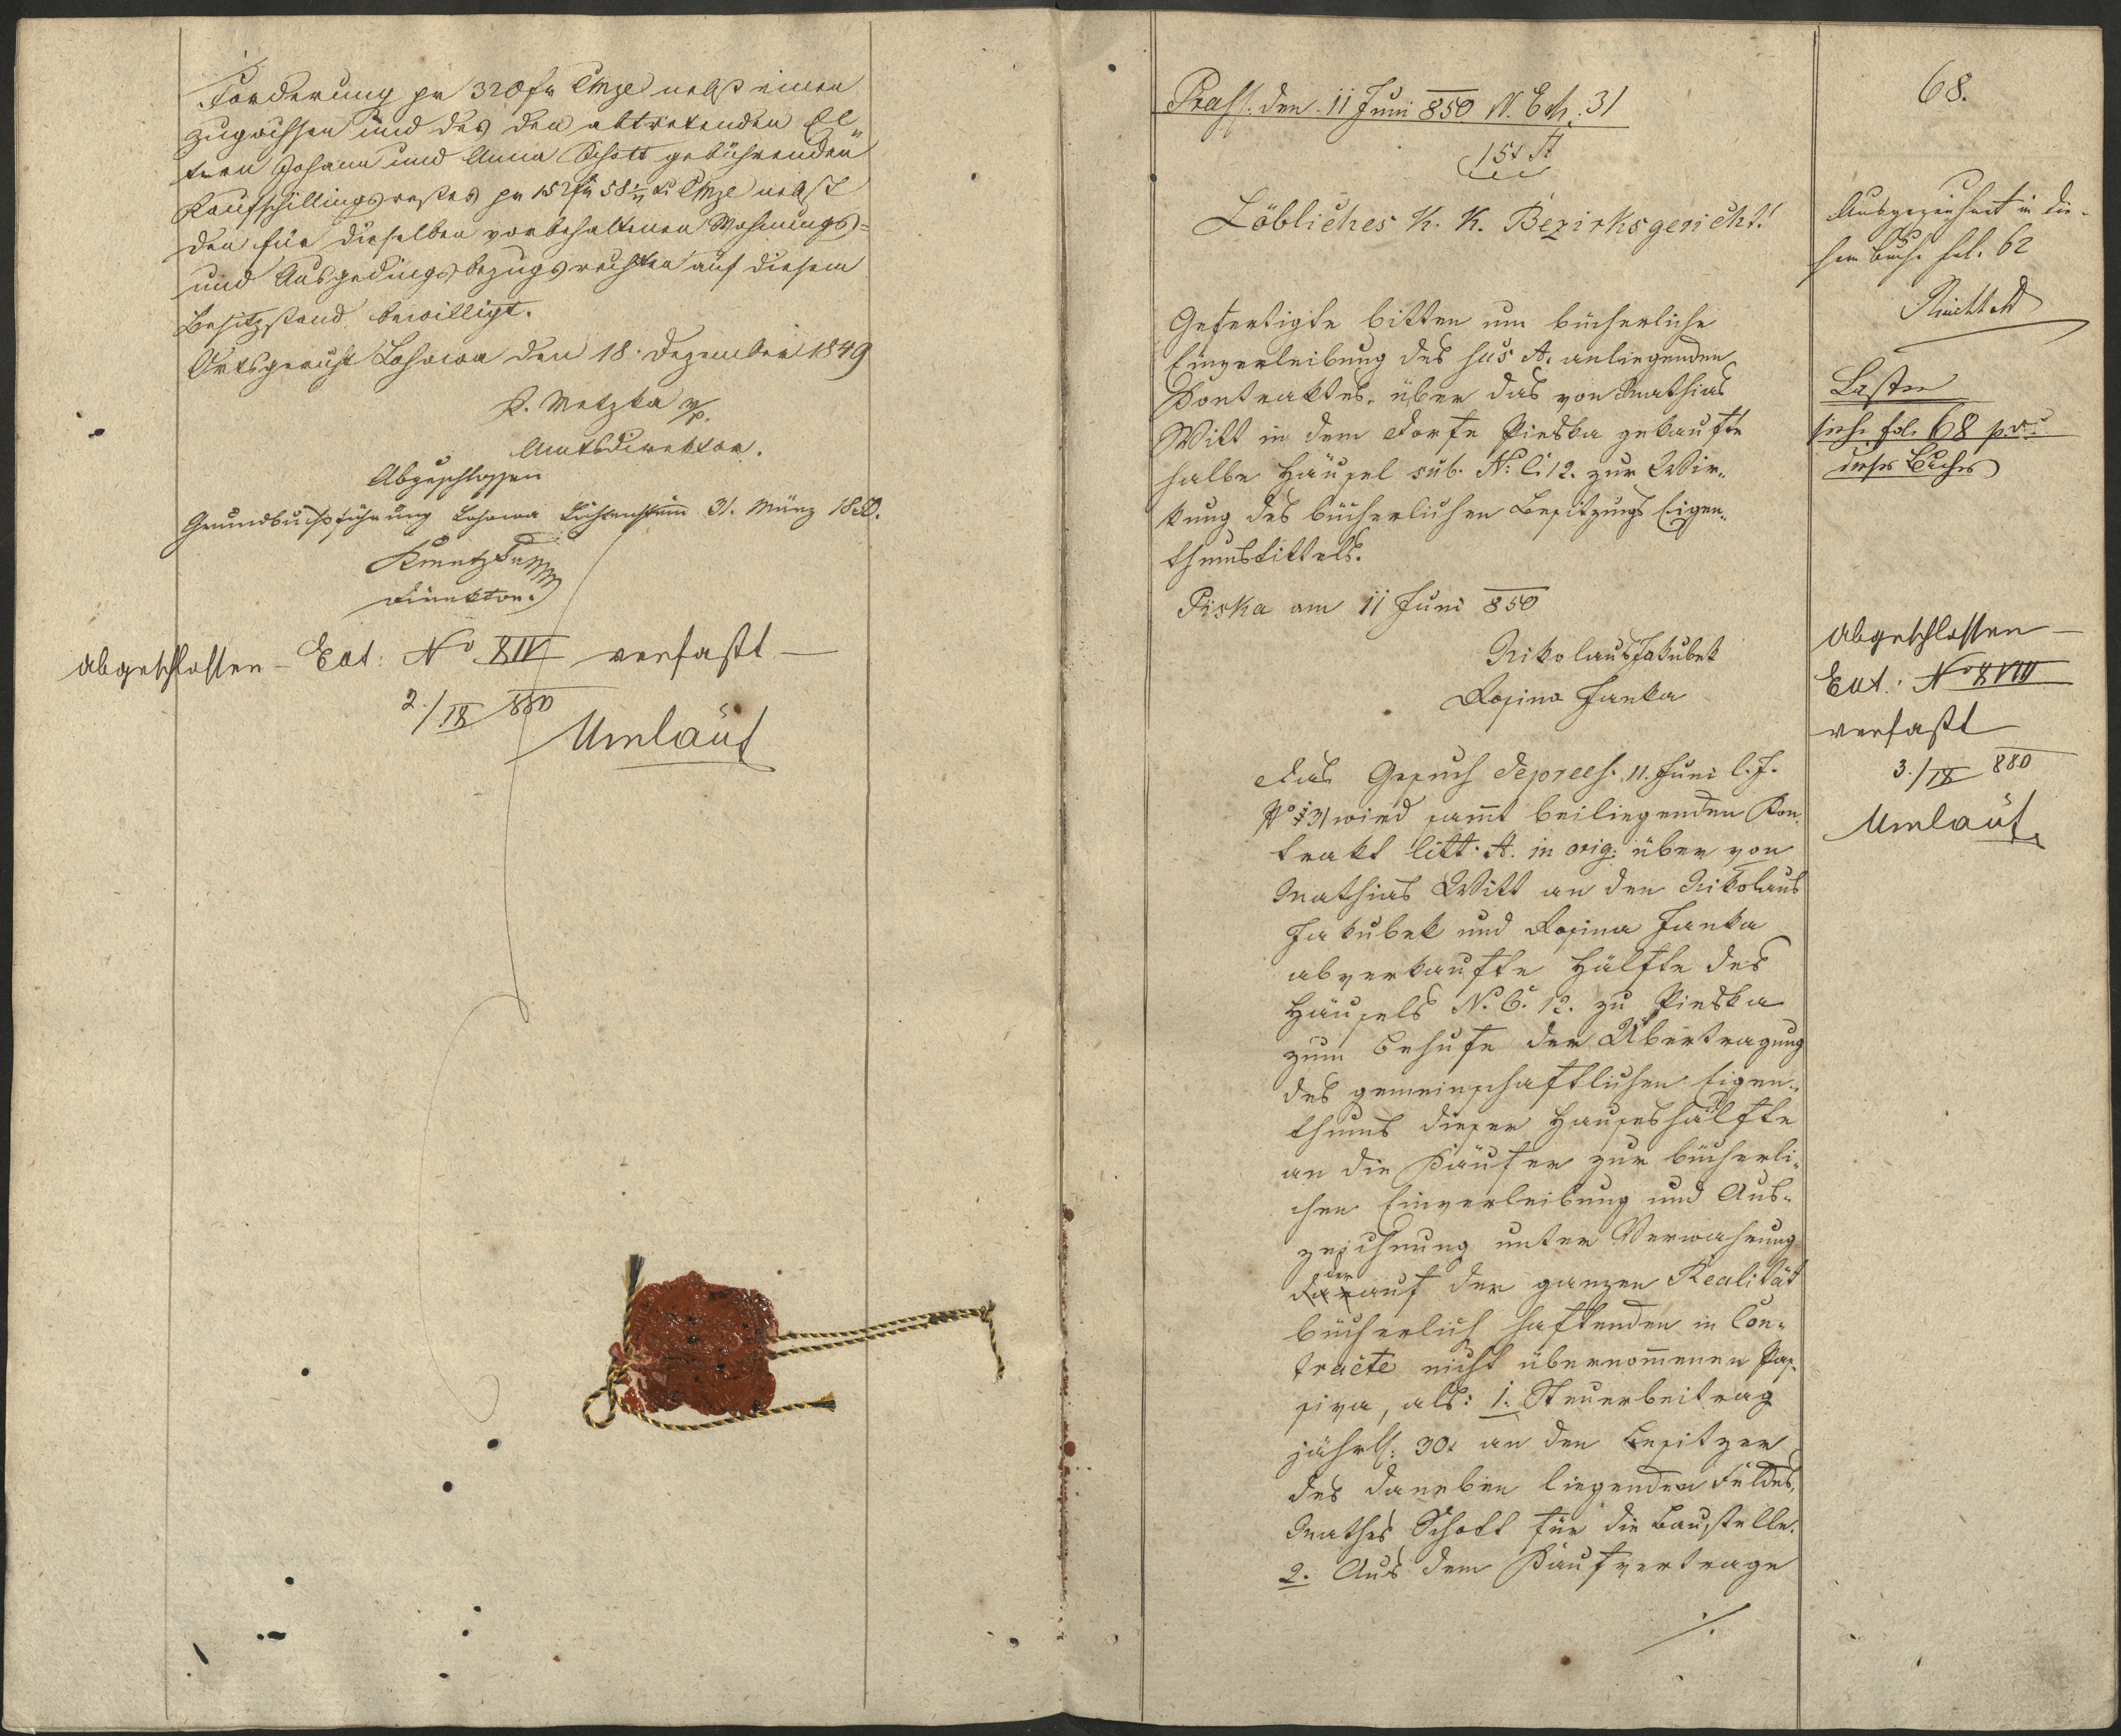 Forderung pr 320 fr CMze nebst einen
zugewissen und des den abtretenden El„
tern Johann und Anna Schott gebührenden
Kaufschillingsrestes pr 152 fr 58 CMze nebst
den für dieselben vorbehaltenen Wohnungs=
und Ausgedingsbezugsrechten auf diesem
Besitzstand bewilligt.
Ortsgericht Lohowa den 18. Dezember 1849
Metzka
Amtsdirektor.
Abgeschlossen
Grundbuchsführung Lohowa 31. März 1850.
Direktor.
abgeschlossen – Ext: No XIV verfaßt —
2./IX 880
Umlauf
Praes. den 11 Juni 850 N. Exh. 31
Löbliches K. K. Bezirksgericht!
Gefertigte bitten um bücherliche
Einverleibung des sub A. anliegenden
Kontraktes, über das von Mathias
Witt in dem Dorfe Pieska gekaufte
halbe Häusel sub. No. C. 12. zur Wir„
kung des bücherlichen Besitzungs Eigen„
thumstittels.
Piska am 11 Juni 850
Nikolaus Jakubek
Rosina Janka
Das Gesuch de praes. 11. Juni l. J.
No 31 wird sammt beiliegenden Kon„
trakt litt. A. in orig: über von
Mathias Witt an den Nikolaus
Jakubek und Rosina Janka
abverkaufte Hälfte des
Häusels N. C. 12. zu Pieska
zum Behufe der Übertragung
des gemeinschaftlichen Eigen„
thums dieser Hauseshälfte
an die Käufer zur bücherli„
chen Einverleibung und Aus„
zeichnung unter Verwahrung
der auf der ganzen Realität
bücherlich haftenden in Con„
tracte nicht übernommenen Pas„
siva, als: 1. Steuerbeitrag
jährl: 30x an den Besitzer
des daneben liegenden Feldes,
Mathes Schott für die Baustelle.
2. Aus dem Kaufvertrage
./.
68.
Ausgezeichnet in die„
sem Buche fol. 62
Lasten
siehe fol. 68
dieses Buches
abgeschlossen —
Ext: No XVIII
verfaßt
3./IX 880
Umlauf